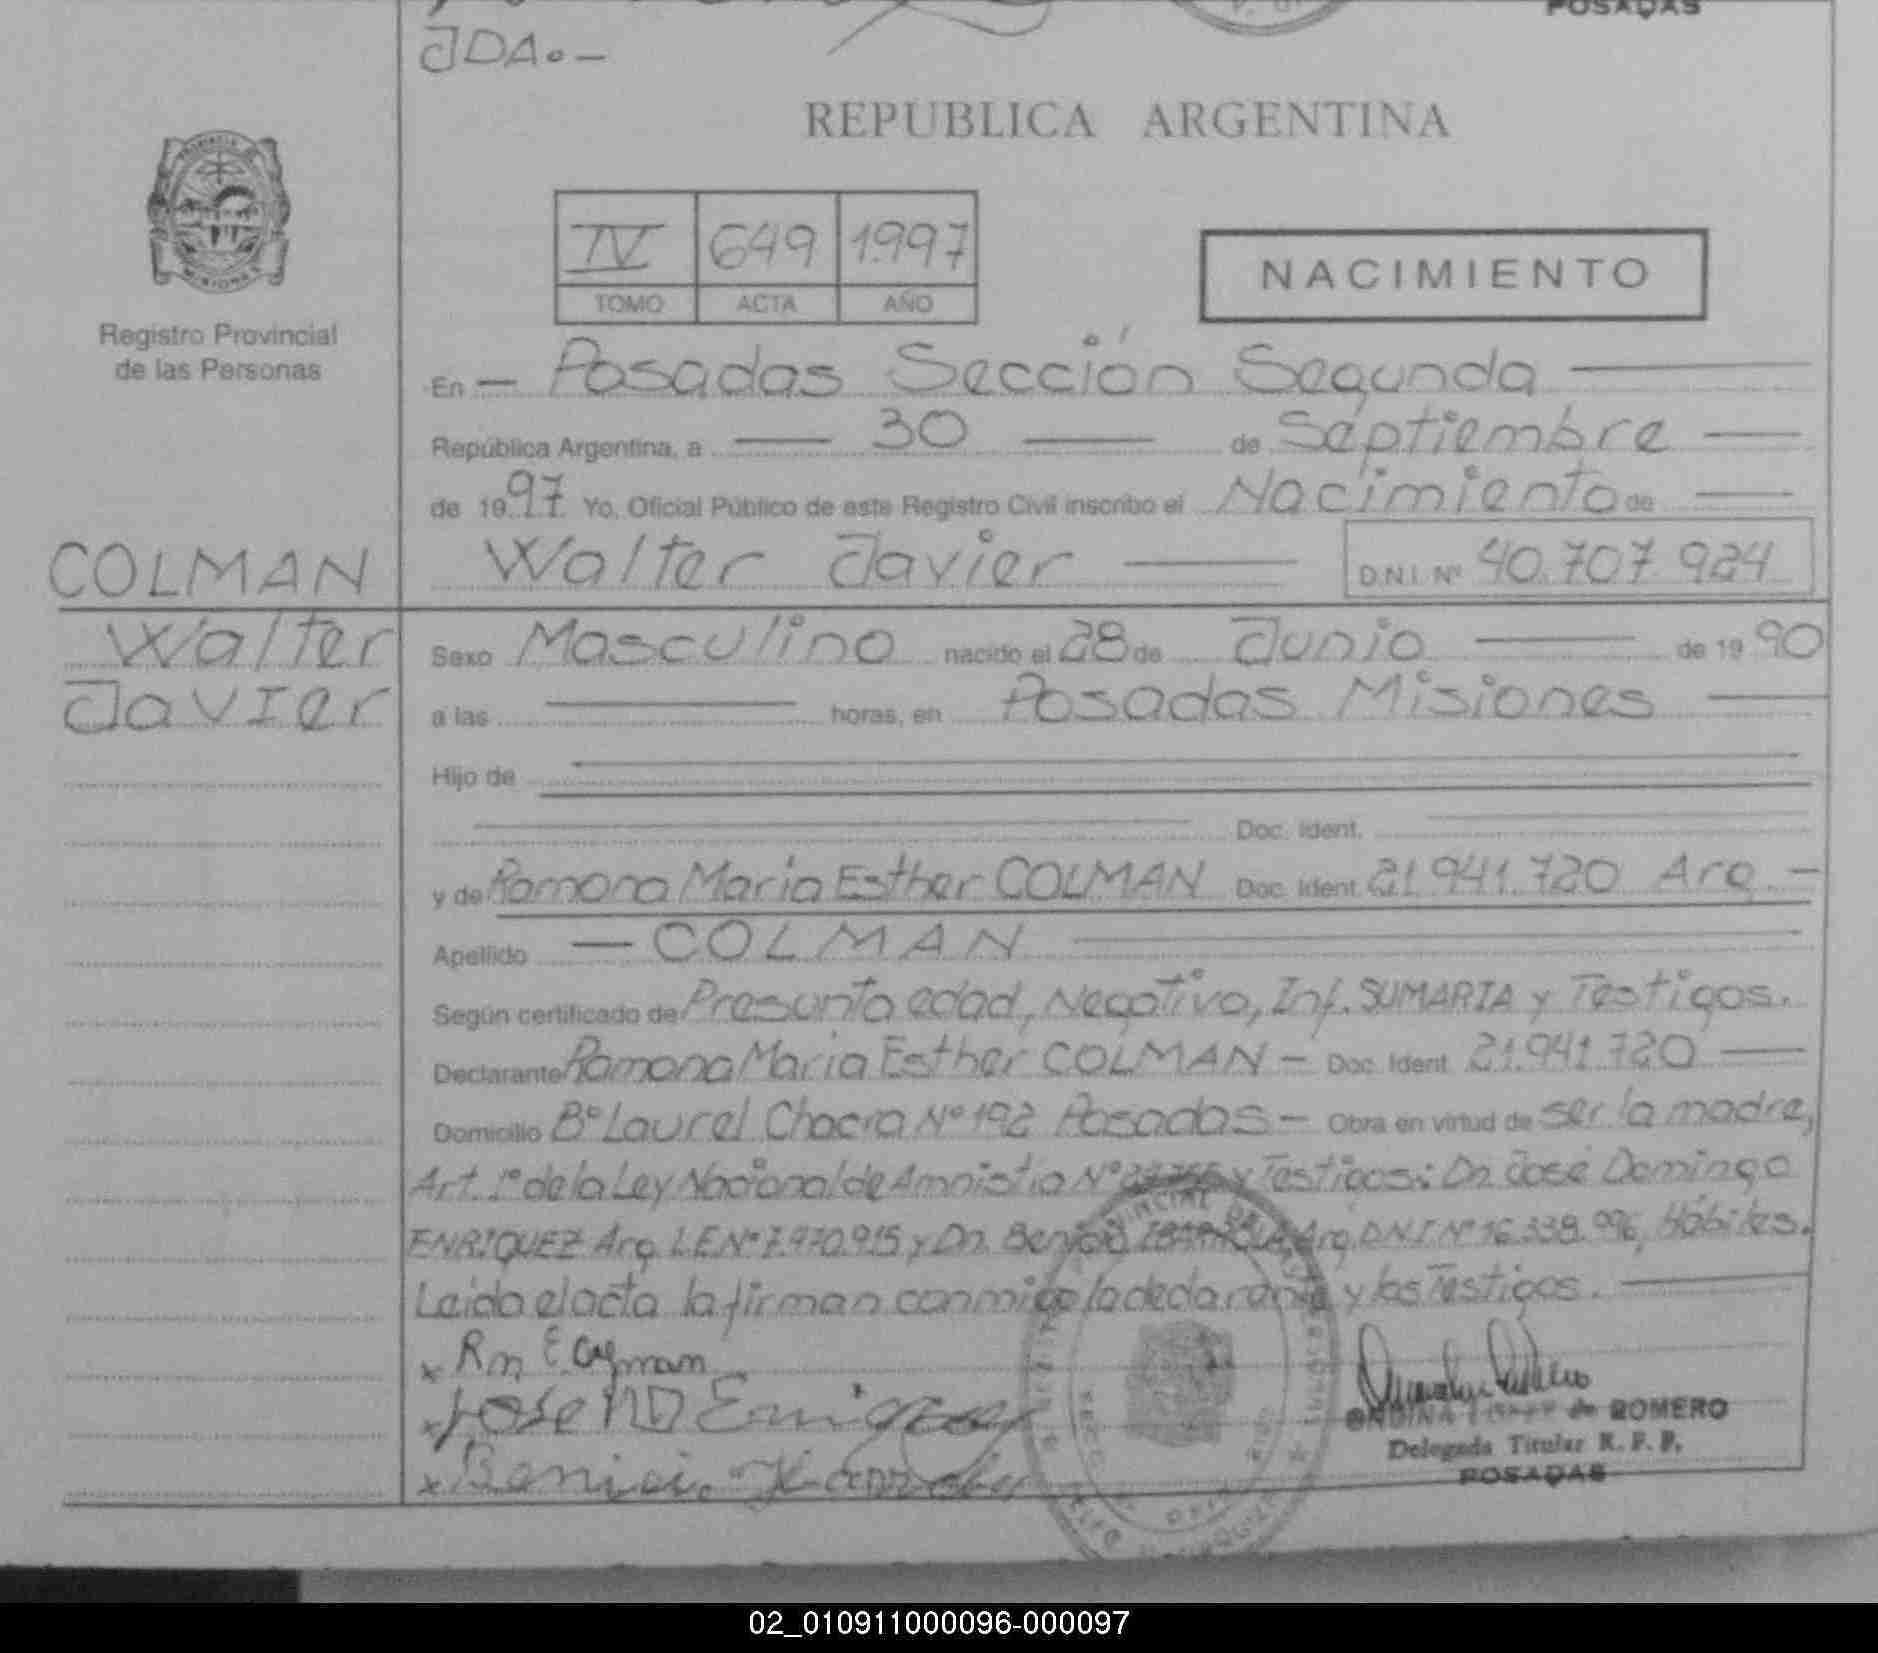 POSADAS
JDA.-
REPUBLICA ARGENTINA
IV 649 1997
TOMO ACTA AÑO
NACIMIENTO
Registro Provincial
de las Personas
En — Posadas Sección Segunda —
República Argentina, a — 30 — de Septiembre —
de 1997 Yo, Oficial Público de este Registro Civil inscribo el Nacimiento de —
COLMAN
Walter Javier — D.N.I. Nº 40.707.924
Walter
Javier
Sexo Masculino nacido el 28 de Junio — de 1990
a las — horas, en Posadas Misiones —
Hijo de
Doc. Ident.
y de Ramona Maria Esther COLMAN Doc. Ident. 21.941.720 Arg. -
Apellido — COLMAN
Según certificado de Presunta edad, Negativo, Inf. SUMARIA y Testigos.
Declarante Ramona Maria Esther COLMAN - Doc. Ident. 21.941.720 —
Domicilio Bº Laurel Chacra Nº 192 Posadas - Obra en virtud de ser la madre,
Art. 1º de la Ley Nacional de Amnistia Nº y Testigos: Dn José Domingo
ENRIQUEZ Arg. L.E.Nº 7.970.915 y Dn. Arg. D.N.I. Nº 16.338.996, Hábiles.
Leida el acta la firman conmigo la declarante y los Testigos. —
x
x Jose D Enriquez
x
ROMERO
Delegada Titular R. P. P.
POSADAS
02_010911000096-000097